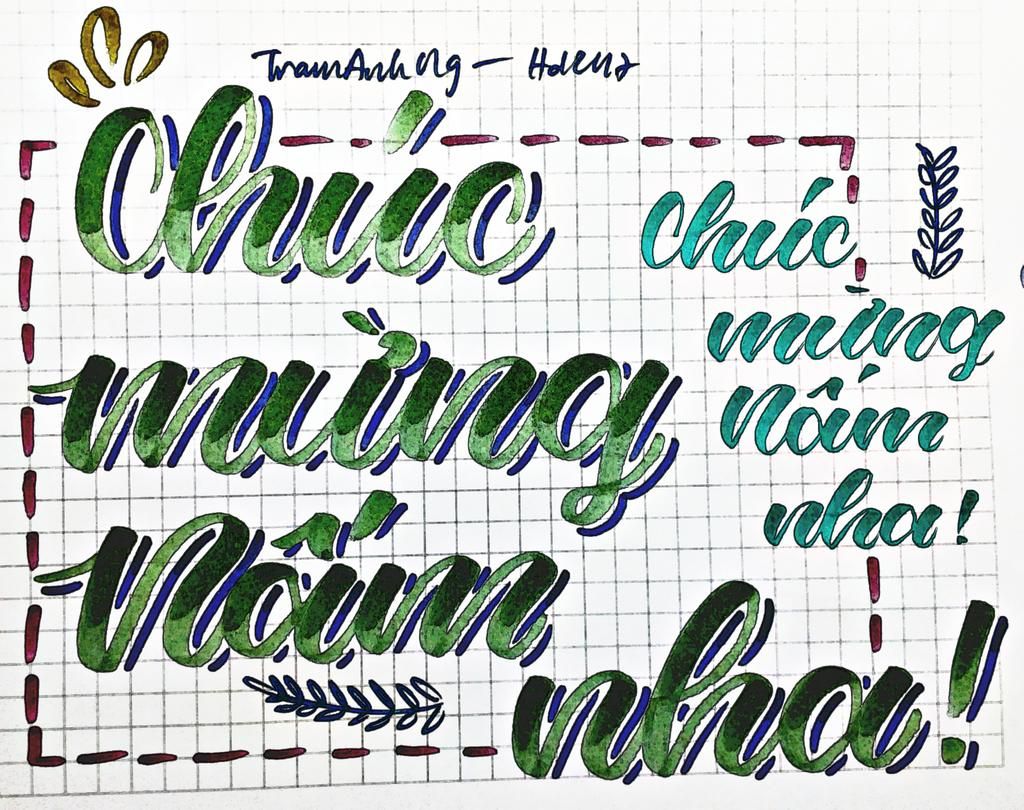 TramAnh Ng —
Chúc
mừng
Nấm
nha!
Chúc
mừng
Nấm
nha!